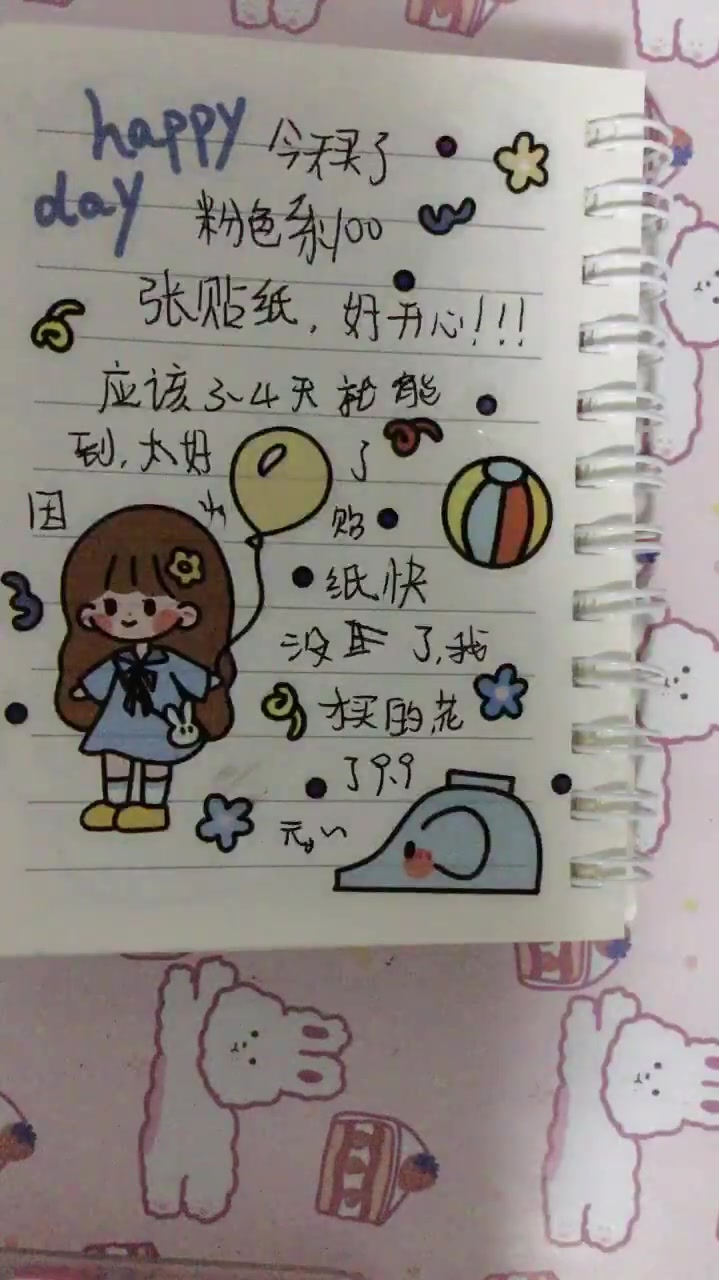 happy 今天买了
day 粉色系100
张贴纸，好开心!!!
应该3-4天就能
到，太好了
因为贴
纸快
没有了，我
才买的，花
了9.9
元。